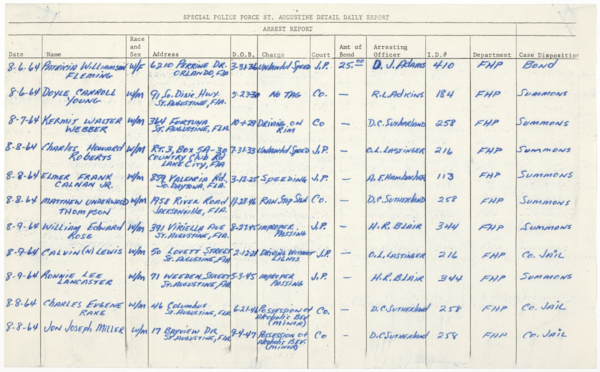 SPECIAL POLICE FORCE ST. AUGUSTINE DETAIL DAILY REPORT
ARREST REPORT
Date Name Race and Sex Address D.O.B. Charge Court Amt of Bond Arresting Officer I.D.# Department Case Disposition
8-6-64 PATRICIA WILLIAMSON FLEMING W/F 6210 PERRINE DR. ORLANDO, FLA. 3-31-36 Unlawful Speed J.P. 25.00 D. J. ADAMS 410 FHP BOND
8-6-64 DOYLE CARROLL YOUNG W/M 91 So. DIXIE HWY. ST. AUGUSTINE, FLA. 5-27-30 No TAG Co. — R.L. ADKINS 184 FHP SUMMONS
8-7-64 KERMIT WALTER WEBBER W/M 364 FORTUNA ST. AUGUSTINE, FLA. 10-1-28 DRIVING ON RIM Co. — D.C. SUTHERLAND 258 FHP SUMMONS
8-8-64 CHARLES HOWARD ROBERTS W/M RT. 3, BOX 5A-30 COUNTRY CLUB Rd LAKE CITY, FLA 7-31-33 Unlawful Speed J.P. — O.L. LASSINGER 216 FHP SUMMONS
8-8-64 ELMER FRANK CALNAN JR. W/M 859 VALENCIA Rd. So. DAYTONA, FLA. 3-12-25 SPEEDING J.P. — A.E. 113 FHP SUMMONS
8-8-64 MATTHEW UNDERWOOD THOMPSON W/M 1958 RIVER ROAD JACKSONVILLE, FLA. 11-28-46 RAN STOP SIGN Co. — D.C. SUTHERLAND 258 FHP SUMMONS
8-9-64 WILLIAM EDWARD ROSE W/M 391 AVE ST. AUGUSTINE, FLA. 8-27-45 IMPROPER PASSING J.P. — H.R. BLAIR 344 FHP SUMMONS
8-9-64 CALVIN (N) LEWIS W/M 50 LOVETT STREET ST. AUGUSTINE, FLA. 2-12-21 DRIVING WITHOUT J.P. — O.L. LASSINGER 216 FHP Co. JAIL
8-9-64 RONNIE LEE LANCASTER W/M 71 WEEDEN STREET ST. AUGUSTINE, FLA. 5-3-45 IMPROPER PASSING J.P. — H.R. BLAIR 344 FHP SUMMONS
8-8-64 CHARLES EUGENE RAKE W/M 46 COLUMBUS ST. AUGUSTINE, FLA. 6-21-46 POSSESSION OF BEV. (MINOR) Co — D.C. SUTHERLAND 258 FHP Co. JAIL
8-8-64 JON JOSEPH MILLER W/M 17 BAYVIEW DR ST. AUGUSTINE, FLA. 9-4-47 POSSESSION OF BEV. (MINOR) Co — D.C. SUTHERLAND 258 FHP Co. JAIL